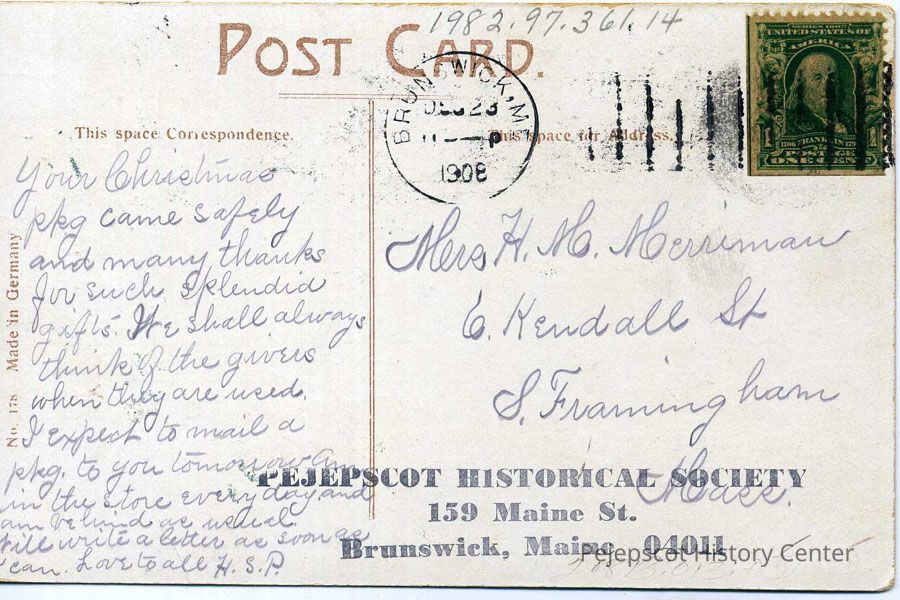 1982.97.361.14
POST CARD.
BRUNSWICK, M
23
11 - P
1908
SERIES 1902
UNITED STATES OF
AMERICA
1
1
FRANKLIN
POSTAGE
ONE CENT
This space Correspondence.
This space for Address.
No. 178 Made in Germany
Your Christmas
pkg came safely
and many thanks
for such splendid
gifts. We shall always
think of the givers
when they are used.
I expect to mail a
pkg. to you tomorrow Am
in the store every day and
am behind as usual.
Will write a letter as soon as
can. Love to all H.S.P.
Mrs H. M. Merriman
6. Kendall St
S. Framingham
Mass.
PEJEPSCOT HISTORICAL SOCIETY
159 Maine St.
Brunswick, Maine 04011
Pejepscot History Center